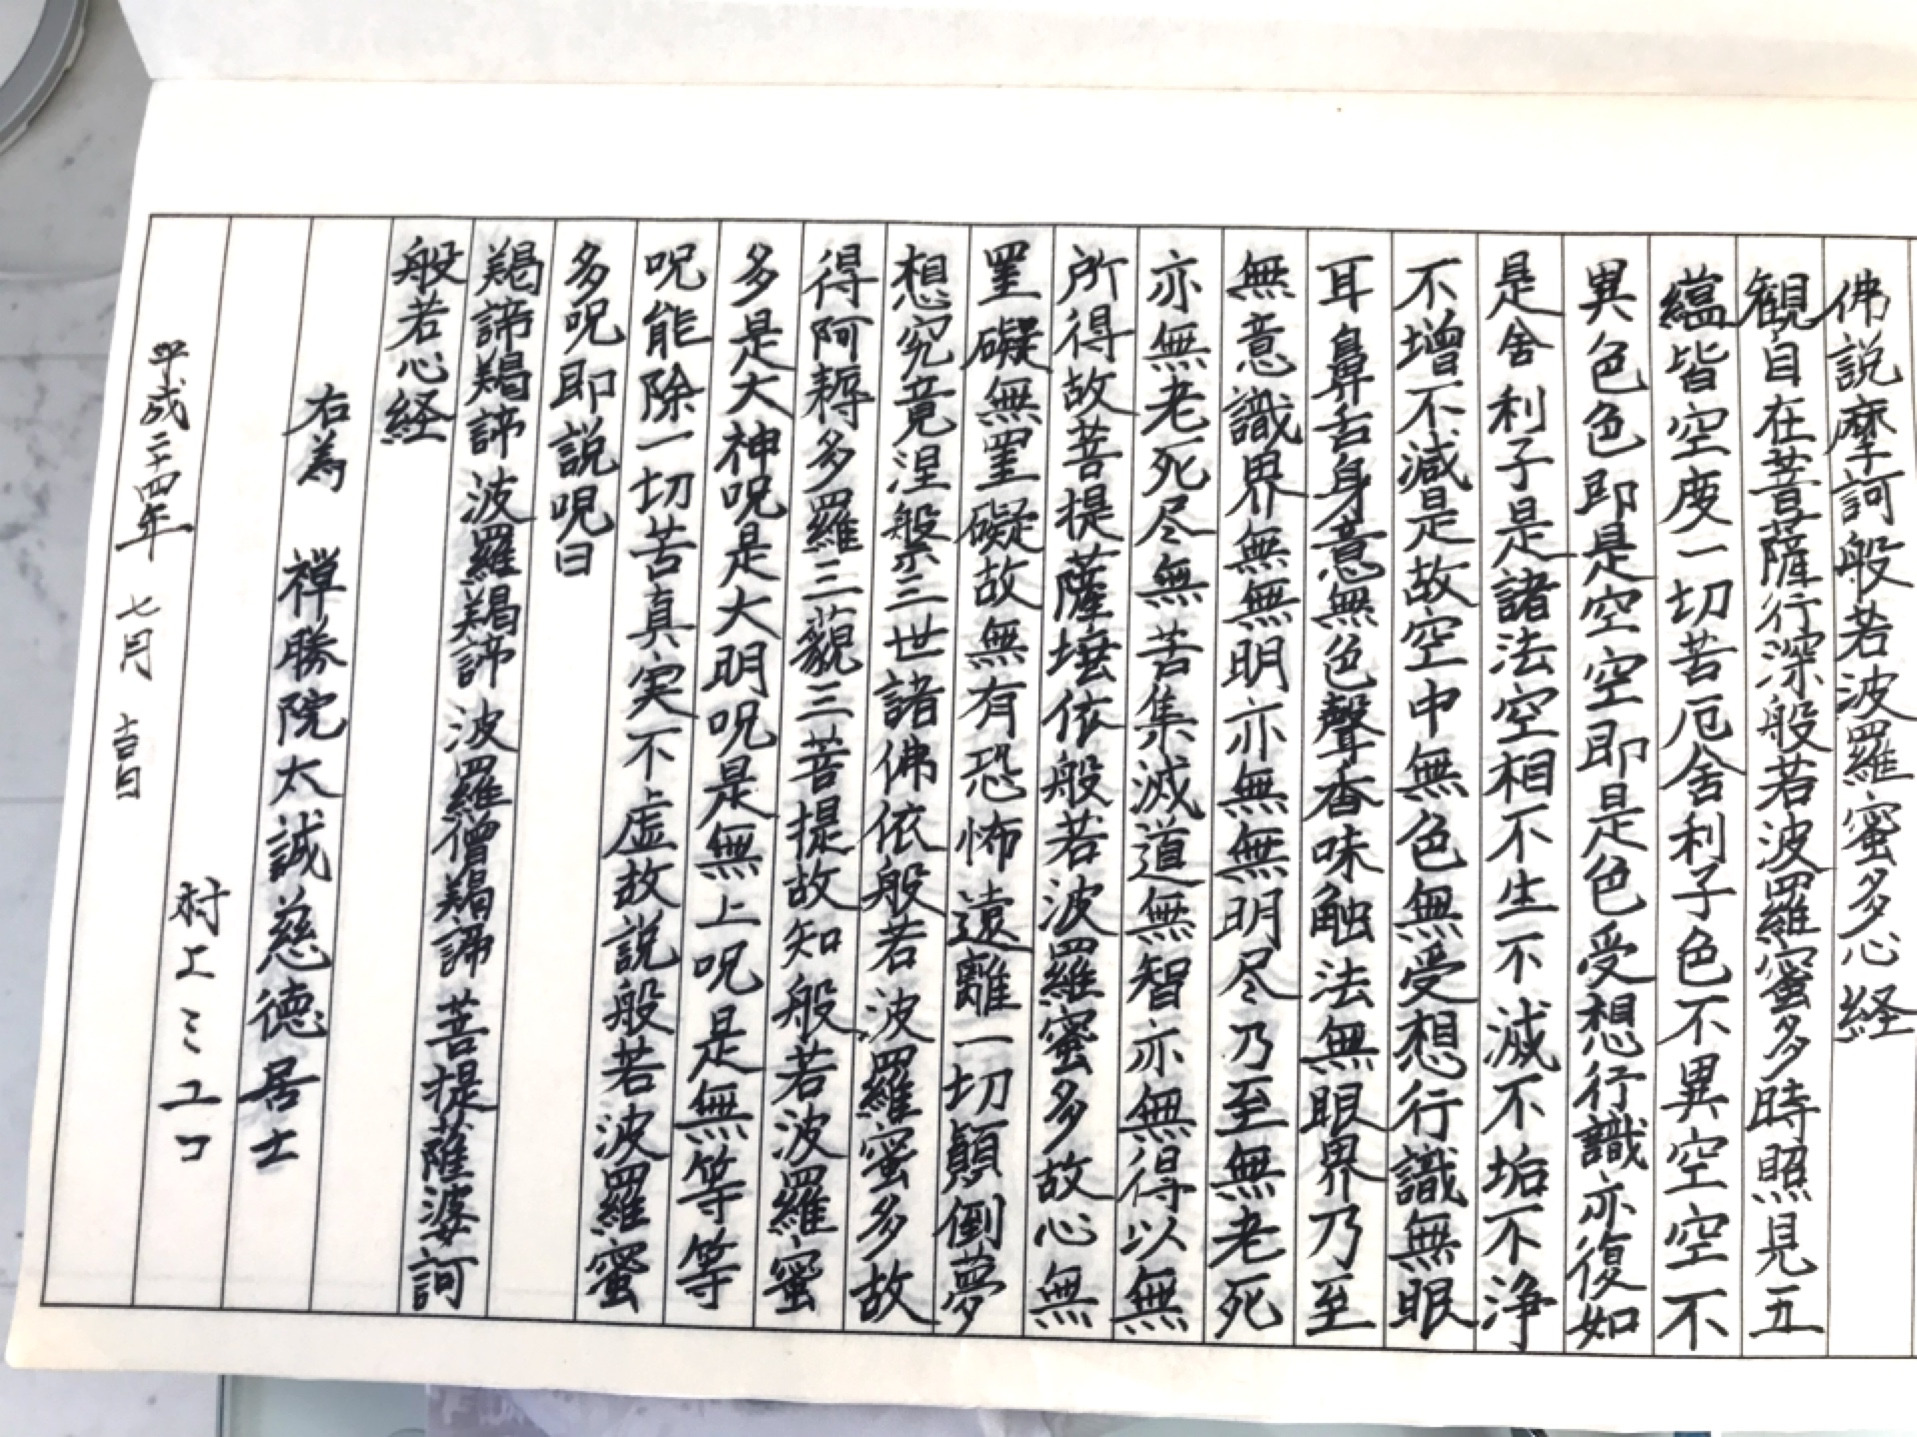 佛説摩訶般若波羅蜜多心経
観自在菩薩行深般若波羅蜜多時照見五
蘊皆空度一切苦厄舍利子色不異空空不
異色色即是空空即是色受想行識亦復如
是舍利子是諸法空相不生不滅不垢不浄
不増不減是故空中無色無受想行識無眼
耳鼻舌身意無色聲香味触法無眼界乃至
無意識界無無明亦無無明尽乃至無老死
亦無老死尽無苦集滅道無智亦無得以無
所得故菩提薩埵依般若波羅蜜多故心無
罣礙無罣礙故無有恐怖遠離一切顛倒夢
想究竟涅槃三世諸佛依般若波羅蜜多故
得阿耨多羅三藐三菩提故知般若波羅蜜
多是大神呪是大明呪是無上呪是無等等
呪能除一切苦真実不虚故説般若波羅蜜
多呪即説呪曰
羯諦羯諦波羅羯諦波羅僧羯諦菩提薩婆訶
般若心経
右為 禅勝院太誠慈徳居士
村上ミユコ
平成二十四年 七月 吉日